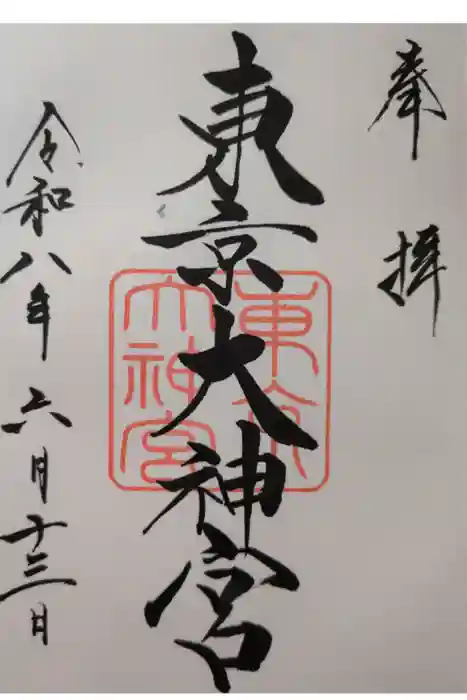 奉拝
東京大神宮
東京大神宮
令和八年六月十三日